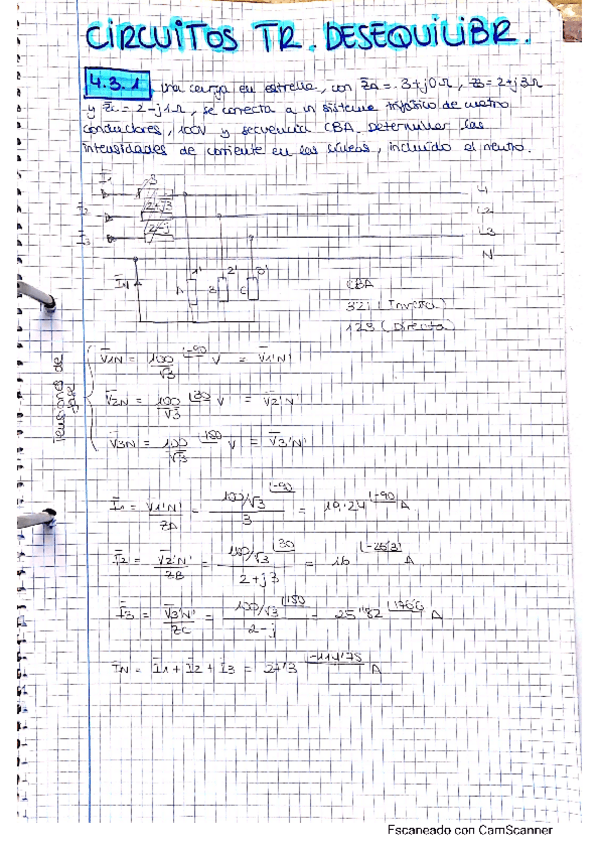 CIRCUITOS TR. DESEQUILIBR.
4.3.1 Una carga en estrella, con Z̄A = 3+j0 Ω, Z̄B = 2+j3 Ω
y Z̄C = 2-j1 Ω, se conecta a un sistema trifásico de cuatro
conductores, 100V y secuencia CBA. Determinar las
intensidades de corriente en las líneas, incluido el neutro.
I1 3 L1
I2 2+j3 L2
I3 2-j L3
N
IN 1' 2' 3'
A B C
CBA
321 (Inversa)
123 (Directa)
Tensiones de fase
V̄1N = 100/√3 ∠-90 V = V̄1'N'
V̄2N = 100/√3 ∠30 V = V̄2'N'
V̄3N = 100/√3 ∠150 V = V̄3'N'
Ī1 = V̄1'N'/ZA = 100/√3 ∠-90 / 3 = 19.24 ∠-90 A
Ī2 = V̄2'N'/ZB = 100/√3 ∠30 / 2+j3 = 16 ∠-26'3 A
Ī3 = V̄3'N'/ZC = 100/√3 ∠150 / 2-j = 25'82 ∠176'6 A
ĪN = Ī1 + Ī2 + Ī3 = 27'3 ∠-114'75 A
Escaneado con CamScanner